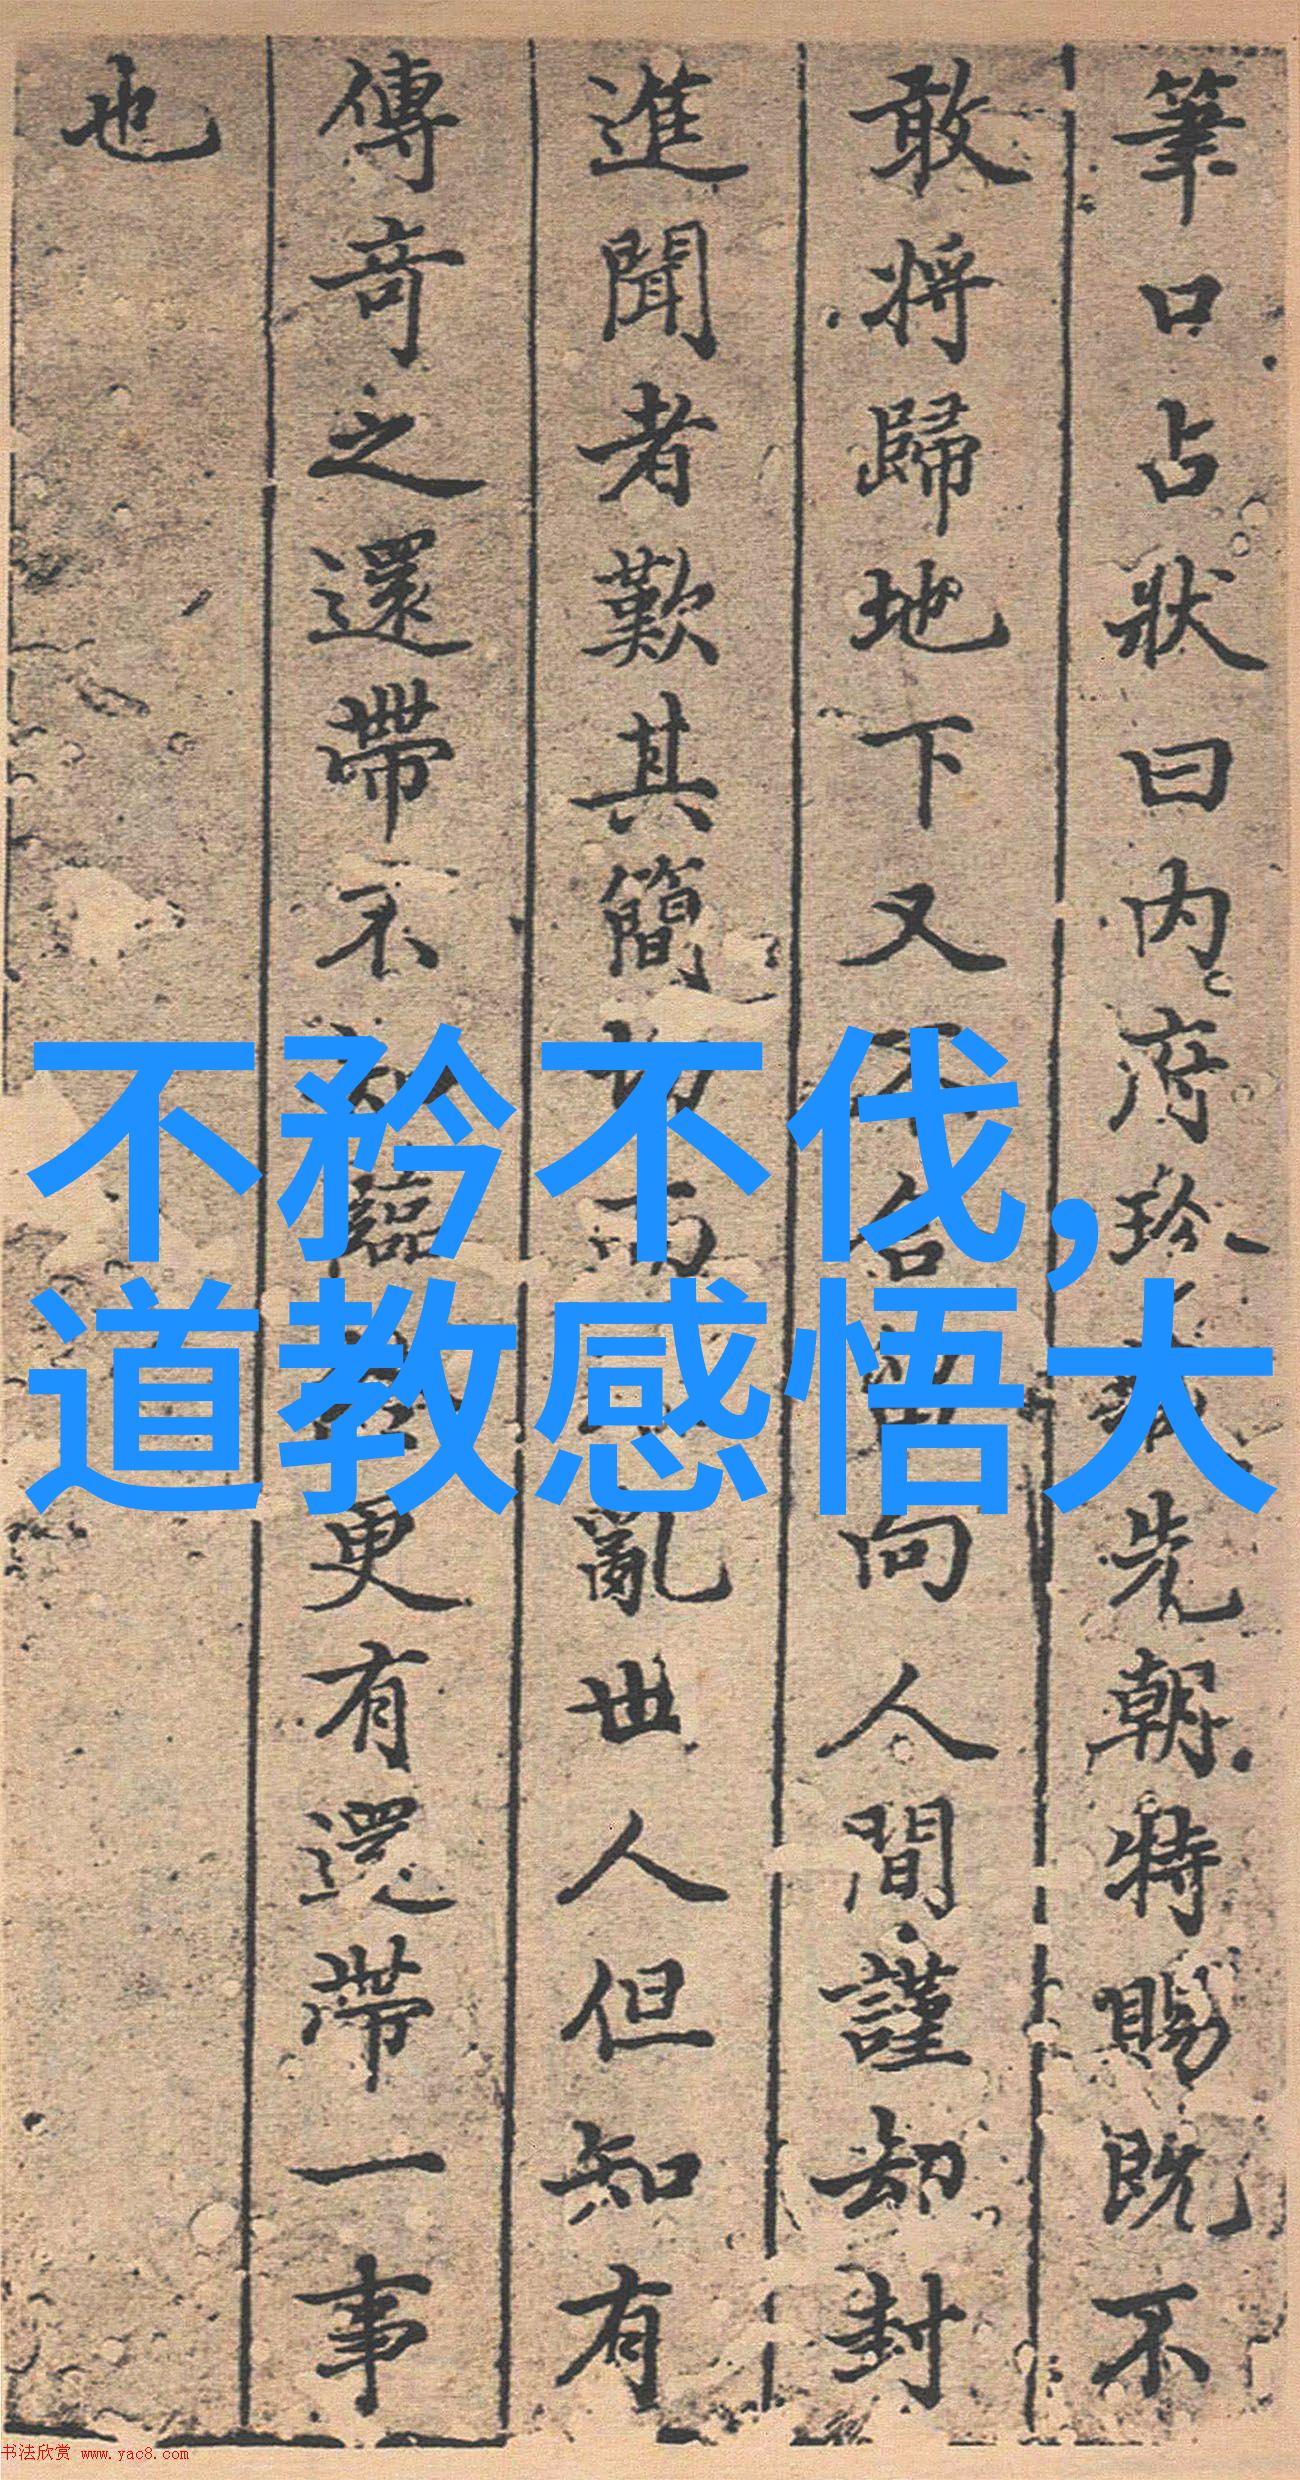 筆口占狀曰内府珍先朝特賜既不
敢將歸地下又不合向人間謹却封
進聞者歎其簡而亂世人但知有
傳奇之還帶不更有還帶一事
也
不矜不伐,
道教感悟大
书法欣赏 www.yac8.com